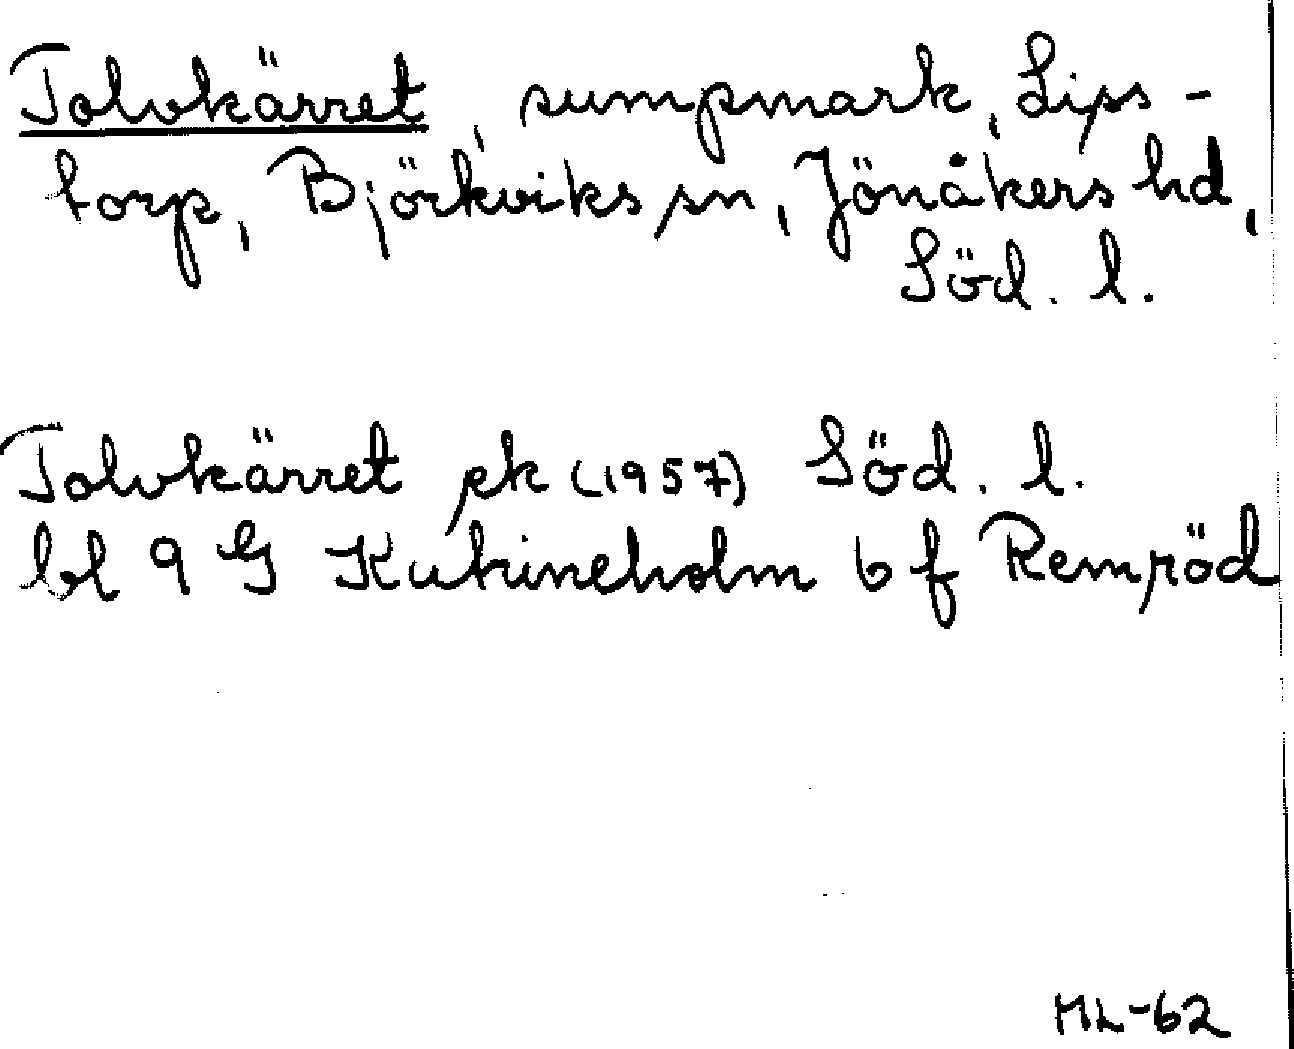 Tolvkärret, sumpmark, Lips-
torp, Björkviks sn, Jönåkers hd,
Söd. l.
Tolvkärret ek (1957) Söd. l.
bl 9 G Katrineholm 6 f Remröd
ML-62